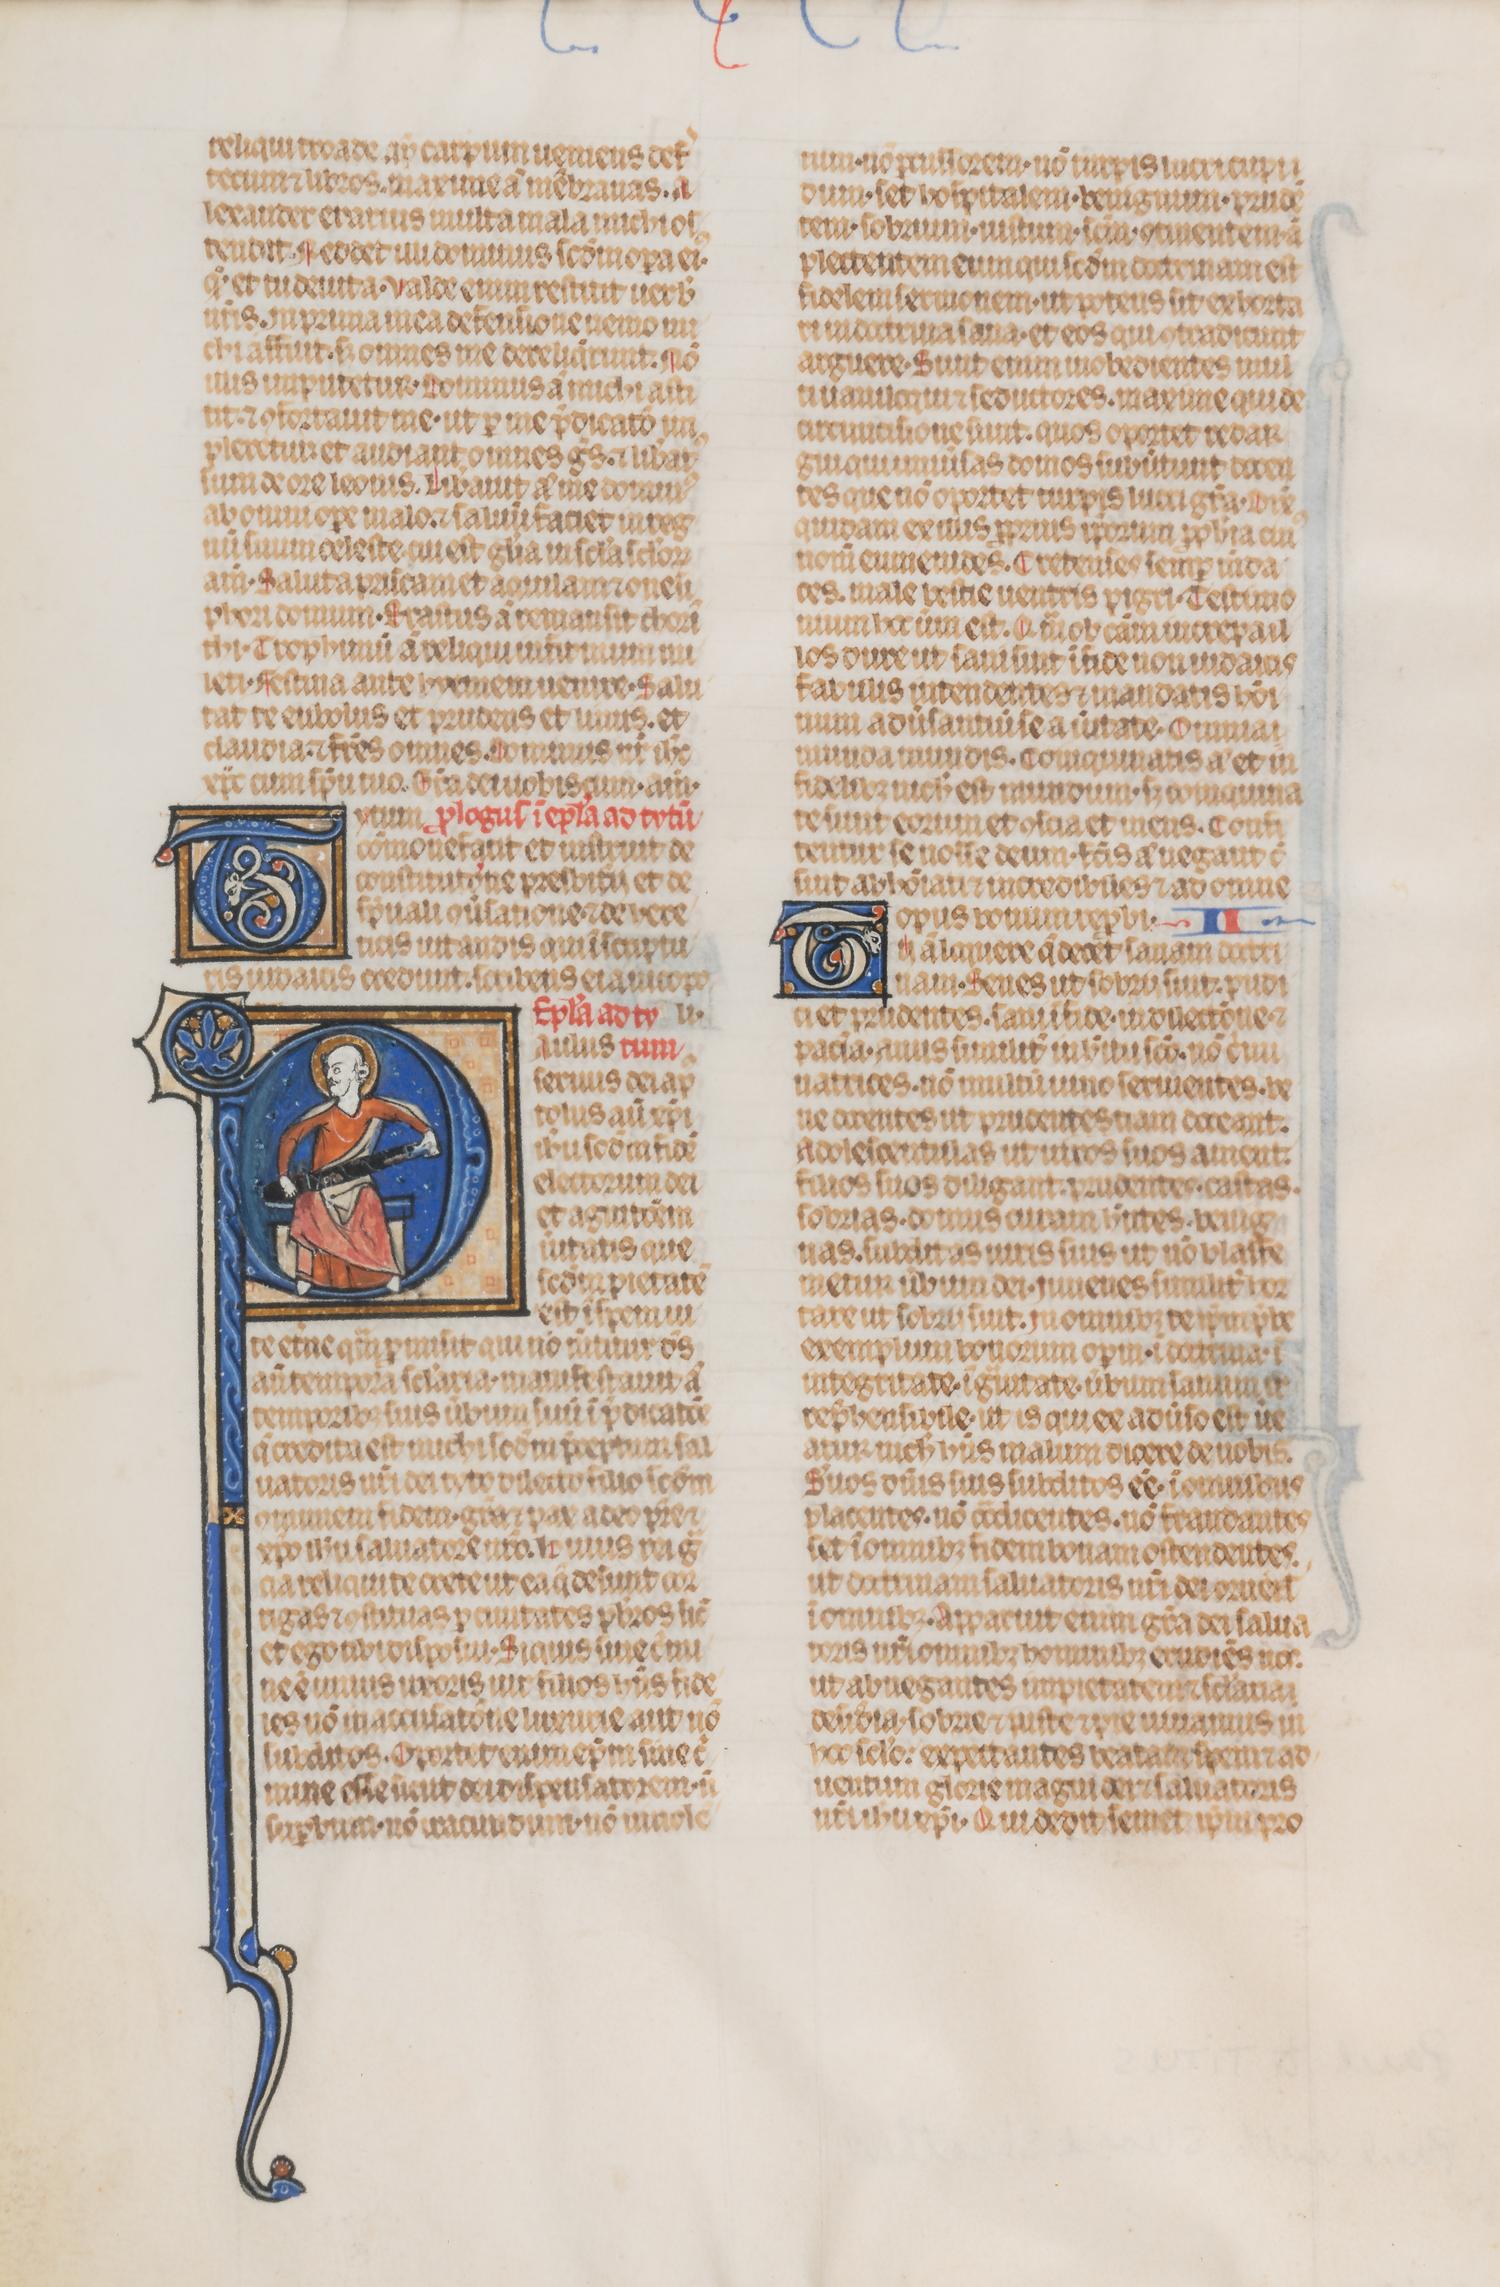 reliqui troade apđ carpum ueniens def̄
tecum ⁊ libros. maxime aū mēbranas. A
lexander erarius multa mala michi os
tendit. Reddet illi dominus scđm opa eiꝰ.
q̄ et tu deuita. Valde enim restitit uerb̄
nr̄is. In prima mea defensione nemo mi
chi affuit. sꝫ omnes me dereliq̄runt. Nō
illis imputetur. Dominus aū michi asti
tit. ⁊ ꝯfortauit me. ut ꝑ me p̄dicatō im
pleretur et audiant om̄nes gēs. ⁊ libatꝰ
sum de ore leonis. Libauit aū me dominꝰ
ab omni ope malo. ⁊ saluū faciet in reg
nū suum celeste cui est gl̄ia in sc̄la sc̄lor
am̄. Saluta priscam et aquilam ⁊ onesi
phori domum. Erastus aū remansit chorī
thi. Trophimū aū reliqui infirmum mi
leti. Festina ante hyemem uenire. Salu
tat te eubolus et prudens et linus. et
claudia. ⁊ fr̄es omnes. Dominus nr̄ ih̄c
xp̄c cum sp̄u tuo. Gr̄a dei uobiscum. am̄.
Tytum plogus ī ep̄la ad tytū
cōmonefacit et instruit de
constitutōne presbiti et de
sp̄uali ꝯuersatione. ⁊ de here
ticis uitandis qui ī scriptu
ris iudaicis credunt. scribens ei a nicopo
Ep̄la ad ty li.
Paulus tum
seruus dei ap̄
tolus aū xp̄i
ih̄u scđm fidē
electorum dei
et agnitōem
ūitatis que
scđm pietatē
est ī spem ui
te etn̄e quā promisit qui nō m̄titur ds̄
an̄ tempora sc̄laria. manifestauit aū
temporibꝫ suis ūbum suū ī p̄dicatōe
q̄ credita est michi scđm p̄ceptum sal
uatoris nr̄i dei tyto dilecto filio scđm
omunem fidem. gr̄a ⁊ pax a deo pr̄e ⁊
xp̄o ih̄u saluatore nr̄o. Huius rei gr̄
cia reliqui te crete ut ea q̄ desunt cor
rigas ⁊ ꝯstituas ꝑ ciuitates pb̄ros sic̄
et ego tibi disposui. Siquis sine c̄mi
ne ē unius uxoris uir filios hn̄s fide
les nō in accusatōne luxurie aut nō
subditos. Oportet enim ep̄m sine c̄
mine esse sicut dei dispensatorem. n̄
supbum. nō iracundum. nō uinole
tum. nō ꝑcussorem. nō turpis lucri cupi
dum. set hospitalem. benignum. prudē
tem. sobrium. iustum. sc̄m. ꝯtinentem. ā
plectentem eum qui scđm doctrinam est
fidelem sermonem. ut potens sit exhorta
ri in doctrina sana. et eos qui ꝯtradicunt
arguere. Sunt enim inobedientes mul
ti uaniloqui ⁊ seductores. maxime qui de
circumcisione sunt. quos oportet redar
gui qui uniūsas domos subūtunt docen
tes que nō oportet turpis lucri gr̄a. Dix̄
quidam ex illis ꝓprius ipsorum ꝓph̄ia cui
nom̄ eumenides. Cretenses semꝑ mda
ces. male bestie uentris pigri. Testimo
nium hoc uum est. Quā ob cām increpa il
los dure ut sani sint ī fide non iudaicis
fabulis intendentes ⁊ mandatis hōi
num aūsantiū se a ūitate. Omnia ī
munda mundis. Coinquinatis aū et in
fidelibꝫ nich̄ est mundum. sꝫ coinquina
te sunt eorum et ꝯscia et mens. Confi
tentur se nosse deum. factis aū negant c̄
sint abhoīati ⁊ incredibiles ⁊ ad omne
opus bonum repbi. II
Tu aū loquere q̄ decet sanam doctri
nam. Senes ut sobrii sint. pudi
ci et prudentes. sani ī fide. in dilectōne ⁊
pacīa. anus similit in hītu sc̄o. nō c̄mi
natrices. nō multū uino seruientes. be
ne docentes ut prudentes tiam doceant.
Adolescentulas ut uiros suos ament.
filios suos diligant. prudentes. castas.
sobrias. domus curam hn̄tes. benig
nas. subditas uiris suis ut nō blasfe
metur ūbum dei. Iuuenes similit hor
tare ut sobrii sint. In omnibꝫ te ip̄m p̄be
exemplum bonorum opm. ī doctrina. ī
integritate. ī gūitate. ūbum sanum irr
rep̄hensibile. ut is qui ex adūso est ūe
atur nich̄ hn̄s malum dicere de nobis.
Suos dn̄is suis subditos ee. ī omnibus
placentes. nō ꝯtdicentes. nō fraudantes
set ī omnibꝫ fidem bonam ostendentes.
ut doctrinam saluatoris nr̄i dei ornent
ī omnibꝫ. Apparuit enim gr̄a dei salua
toris nr̄i omnibꝫ hominibꝫ erudiēs nos.
ut abnegantes impietatem ⁊ sc̄laria
desid̄ia. sobrie ⁊ iuste ⁊ pie uiuamus in
hoc sc̄lo. expectantes beatam spem ⁊ ad
uentum glorie magni dei ⁊ saluatoris
nr̄i ih̄u xp̄i. Qui dedit semet ip̄m pro